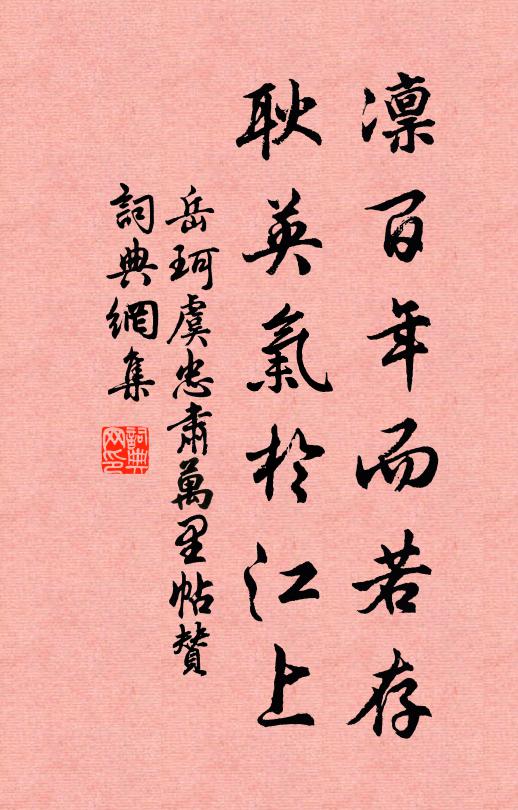 凛百年而若存
耿英氣於江上
岳珂虞忠肅萬里帖贊
詞典網集
詞典
网印